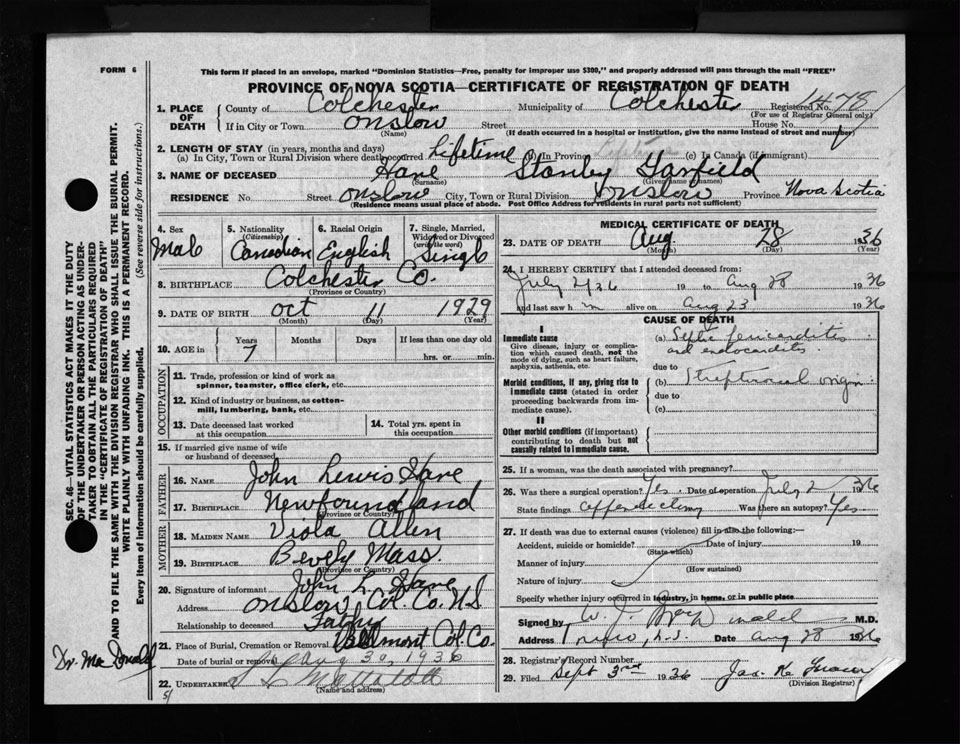 FORM 6
This form if placed in an envelope, marked "Dominion Statistics—Free, penalty for improper use $300," and properly addressed will pass through the mail "FREE"
PROVINCE OF NOVA SCOTIA—CERTIFICATE OF REGISTRATION OF DEATH
1. PLACE OF DEATH County of Colchester Municipality of Colchester Registered No. 1478
(For use of Registrar General only)
If in City or Town Onslow Street House No.
(Name) (If death occurred in a hospital or institution, give the name instead of street and number)
2. LENGTH OF STAY (in years, months and days)
(a) In City, Town or Rural Division where death occurred Lifetime (b) In Province (c) In Canada (if immigrant)
3. NAME OF DECEASED Stanley Garfield
(Surname) (Given names)
RESIDENCE No. Street Onslow City, Town or Rural Division Onslow Province Nova Scotia
(Residence means usual place of abode. Post Office Address for residents in rural parts not sufficient)
4. Sex Male
5. Nationality (Citizenship) Canadian
6. Racial Origin English
7. Single, Married, Widowed or Divorced (write the word) Single
8. BIRTHPLACE Colchester Co.
(Province or Country)
9. DATE OF BIRTH Oct 11 1929
(Month) (Day) (Year)
10. AGE in Years 7 Months Days If less than one day hrs. or min.
OCCUPATION
11. Trade, profession or kind of work as spinner, teamster, office clerk, etc.
12. Kind of industry or business, as cotton-mill, lumbering, bank, etc.
13. Date deceased last worked at this occupation
14. Total yrs. spent in this occupation
15. If married give name of wife or husband of deceased
FATHER
16. NAME John Lewis
17. BIRTHPLACE Newfoundland
(Province or Country)
MOTHER
18. MAIDEN NAME Viola Allen
19. BIRTHPLACE Bevely Mass.
(Province or Country)
20. Signature of informant John L.
Address Onslow Col. Co. N.S.
Relationship to deceased Father
21. Place of Burial, Cremation or Removal Belmont Col. Co.
Date of burial or removal Aug 30, 1936
22. UNDERTAKER
(Name and address)
MEDICAL CERTIFICATE OF DEATH
23. DATE OF DEATH Aug 28 1936
(Month) (Day) (Year)
24. I HEREBY CERTIFY that I attended deceased from:
July 2/36 19 to Aug 28 1936
and last saw h m alive on Aug 23 1936
CAUSE OF DEATH
I
Immediate cause
Give disease, injury or complication which caused death, not the mode of dying, such as heart failure, asphyxia, asthenia, etc.
(a) Septic pericarditis
and endocarditis
due to
Morbid conditions, if any, giving rise to immediate cause (stated in order proceeding backwards from immediate cause).
(b) origin
due to
(c)
II
Other morbid conditions (if important) contributing to death but not causally related to immediate cause.
25. If a woman, was the death associated with pregnancy?
26. Was there a surgical operation? Yes. Date of operation July 2 1936
State findings Was there an autopsy? Yes
27. If death was due to external causes (violence) fill in also the following:—
Accident, suicide or homicide? Date of injury 19
(State which)
Manner of injury
(How sustained)
Nature of injury
Specify whether injury occurred in industry, in home, or in public place
Signed by M.D.
Address Truro, N.S. Date Aug 28 1936
28. Registrar's Record Number
29. Filed Sept 3rd 1936 Jas. K.
(Division Registrar)
SEC. 46—VITAL STATISTICS ACT MAKES IT THE DUTY
OF THE UNDERTAKER OR PERSON ACTING AS UNDER-
TAKER TO OBTAIN ALL THE PARTICULARS REQUIRED
IN THE "CERTIFICATE OF REGISTRATION OF DEATH"
AND TO FILE THE SAME WITH THE DIVISION REGISTRAR WHO SHALL ISSUE THE BURIAL PERMIT.
WRITE PLAINLY WITH UNFADING INK. THIS IS A PERMANENT RECORD.
Every item of information should be carefully supplied. (See reverse side for instructions.)
Dr. MacDonald
51